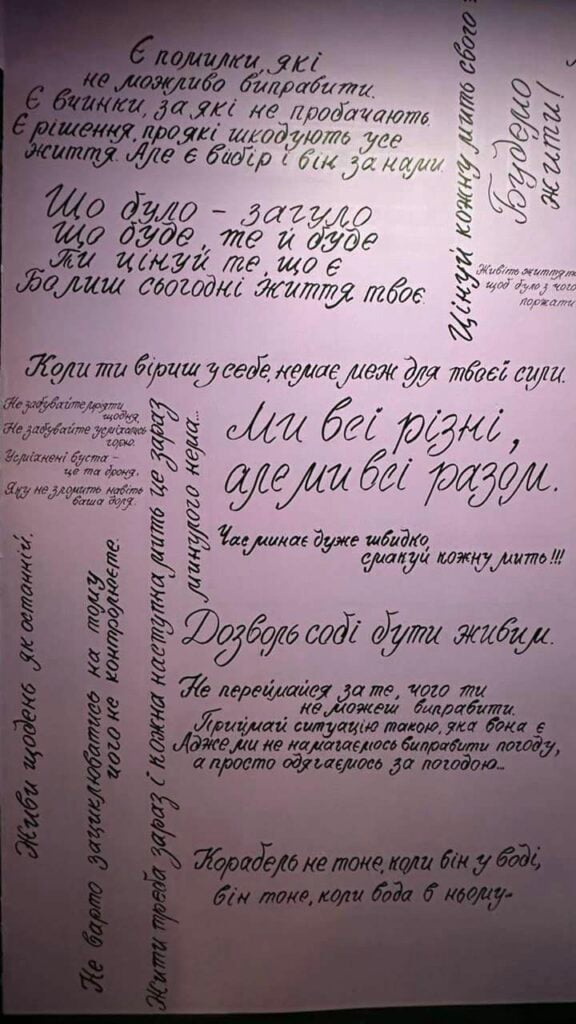 Є помилки, які
не можливо виправити.
Є вчинки, за які не пробачають.
Є рішення, про які шкодують усе
життя. Але є вибір і він за нами.
Що було – загуло
Що буде, те й буде
Ти цінуй те, що є
Бо лиш сьогодні життя твоє.
Цінуй кожну мить свого
Будемо
жити!
Живіть життя
щоб було з чого
поржати
Коли ти віриш у себе, немає меж для твоєї сили.
Не забувайте мріяти
щодня.
Не забувайте усміхатись
гірко.
Усміхнені вуста –
це та броня,
Яку не зломить навіть
ваша доля.
Ми всі різні,
але ми всі разом.
Час минає дуже швидко,
смакуй кожну мить!!!
Дозволь собі бути живим.
Не переймайся за те, чого ти
не можеш виправити.
Приймай ситуацію такою, яка вона є
Адже ми не намагаємось виправити погоду,
а просто одягаємось за погодою...
Корабель не тоне, коли він у воді,
він тоне, коли вода в ньому.
Живи щодень як останній.
Не варто зациклюватись на тому
чого не контролюєте.
Жити треба зараз і кожна наступна мить це зараз
минулого нема...